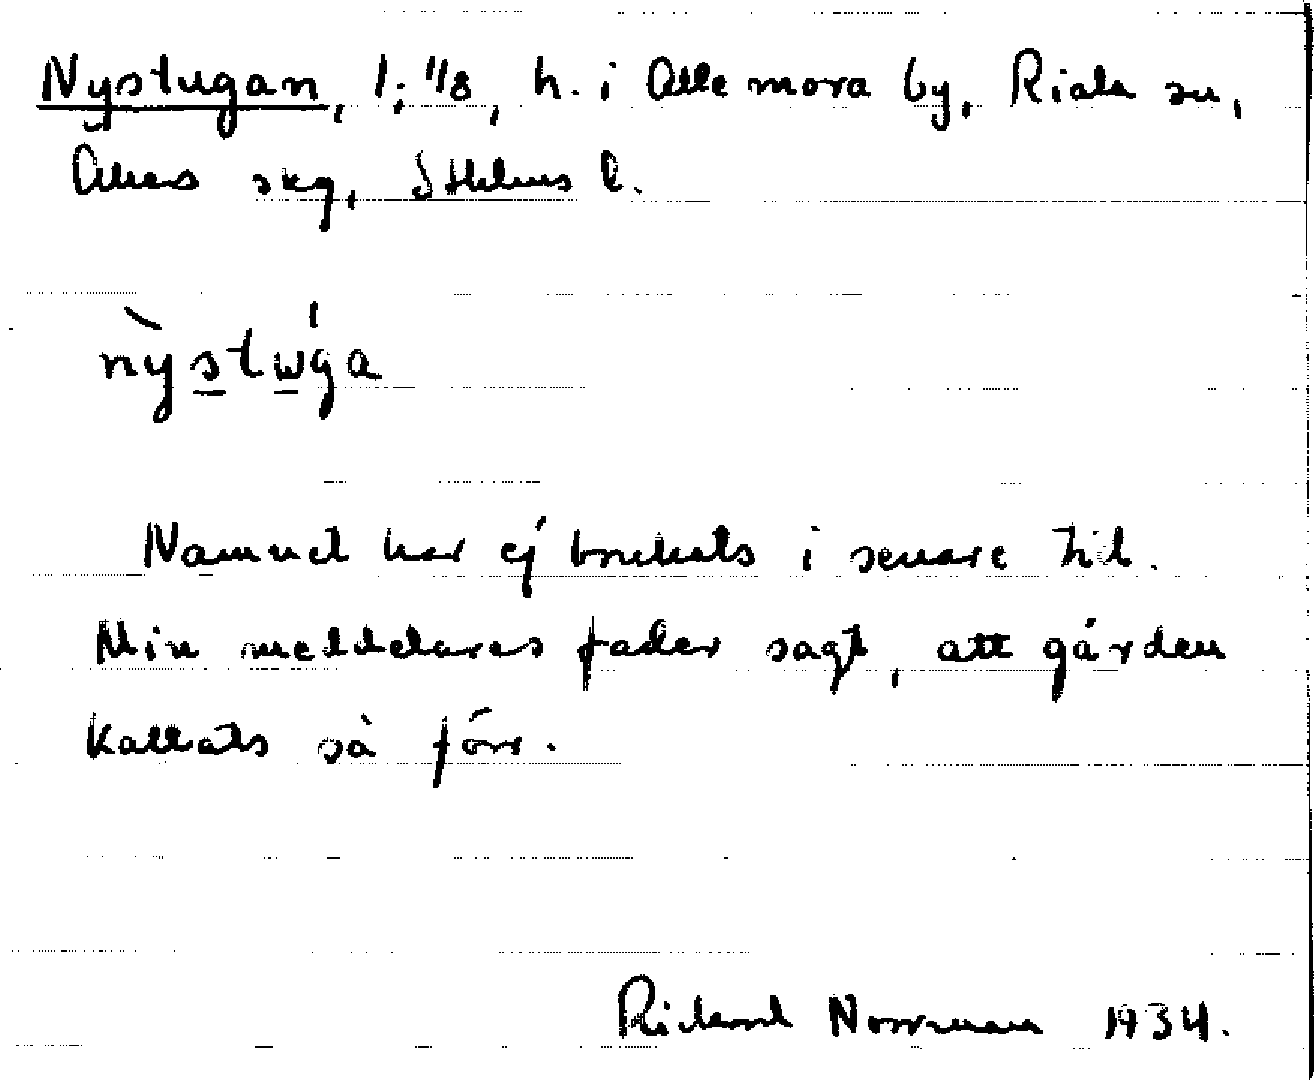 Nystugan, 1; 1/8, h. i Allemora by, Riala sn,
Åkers skg, Sthlms l.
nỳstẃga
Namnet har ej brukats i senare tid.
Min meddelares fader sagt, att gården
kallats så förr.
Richard Norrman 1934.